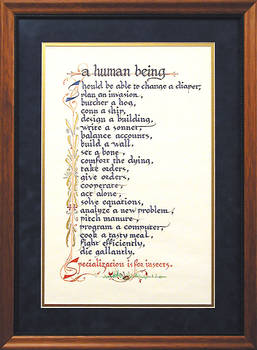 a human being
Should be able to change a diaper,
plan an invasion,
butcher a hog,
conn a ship,
design a building,
write a sonnet,
balance accounts,
build a wall,
set a bone,
comfort the dying,
take orders,
give orders,
cooperate,
act alone,
solve equations,
analyze a new problem,
pitch manure,
program a computer,
cook a tasty meal,
fight efficiently,
die gallantly.
Specialization is for insects.